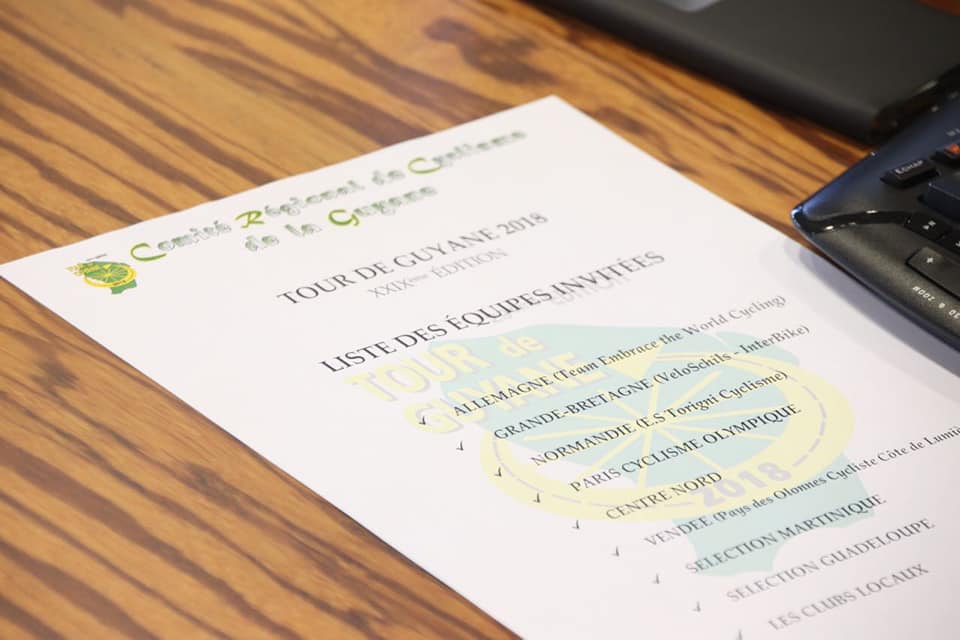 Comité Régional de Cyclisme
de la Guyane
TOUR DE GUYANE 2018
XXIXème EDITION
LISTE DES ÉQUIPES INVITÉES
TOUR de
GUYANE
2018
✓ ALLEMAGNE (Team Embrace the World Cycling)
✓ GRANDE-BRETAGNE (VeloSchils - InterBike)
✓ NORMANDIE (E.S Torigni Cyclisme)
✓ PARIS CYCLISME OLYMPIQUE
✓ CENTRE NORD
✓ VENDEE (Pays des Olonnes Cycliste Côte de Lumiè
✓ SELECTION MARTINIQUE
✓ SELECTION GUADELOUPE
✓ LES CLUBS LOCAUX
ECHAP
3D & ZOOM